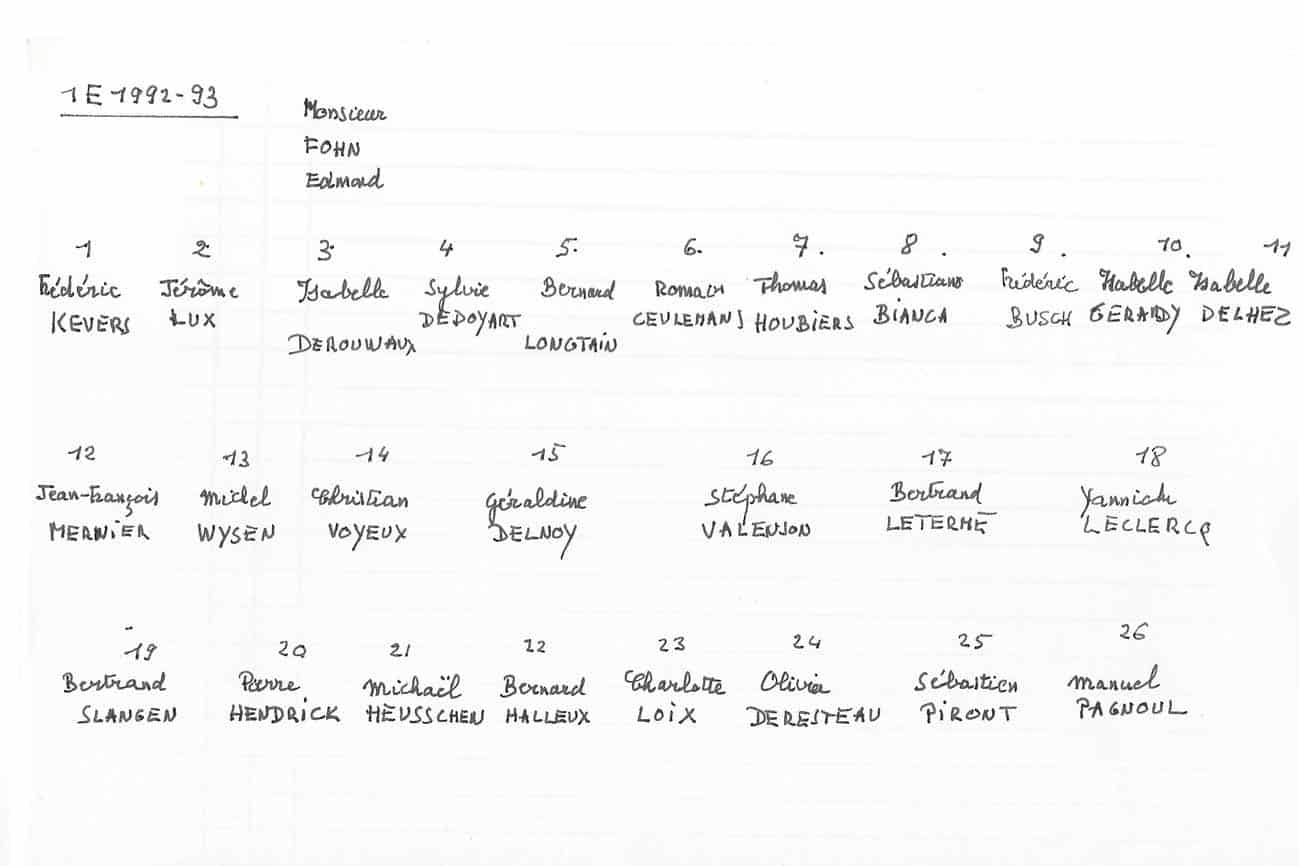 1E 1992-93
Monsieur
FOHN
Edmond
1 2 3 4 5. 6. 7. 8. 9. 10. 11
Frédéric Jérôme Isabelle Sylvie Bernard Romain Thomas Sébastiano Frédéric Isabelle Isabelle
KEVERS LUX DEDOYART CEULEMANS HOUBIERS BIANCA BUSCH GERARDY DELHEZ
DEROUWAUX LONGTAIN
12 13 14 15 16 17 18
Jean-François Michel Christian Géraldine Stéphane Bertrand Yannick
MERNIER WYSEN VOYEUX DELNOY VALENSON LETERME LECLERCQ
19 20 21 22 23 24 25 26
Bertrand Pierre Michaël Bernard Charlotte Olivia Sébastien Manuel
SLANGEN HENDRICK HEUSSCHEN HALLEUX LOIX DERESTEAU PIRONT PAGNOUL